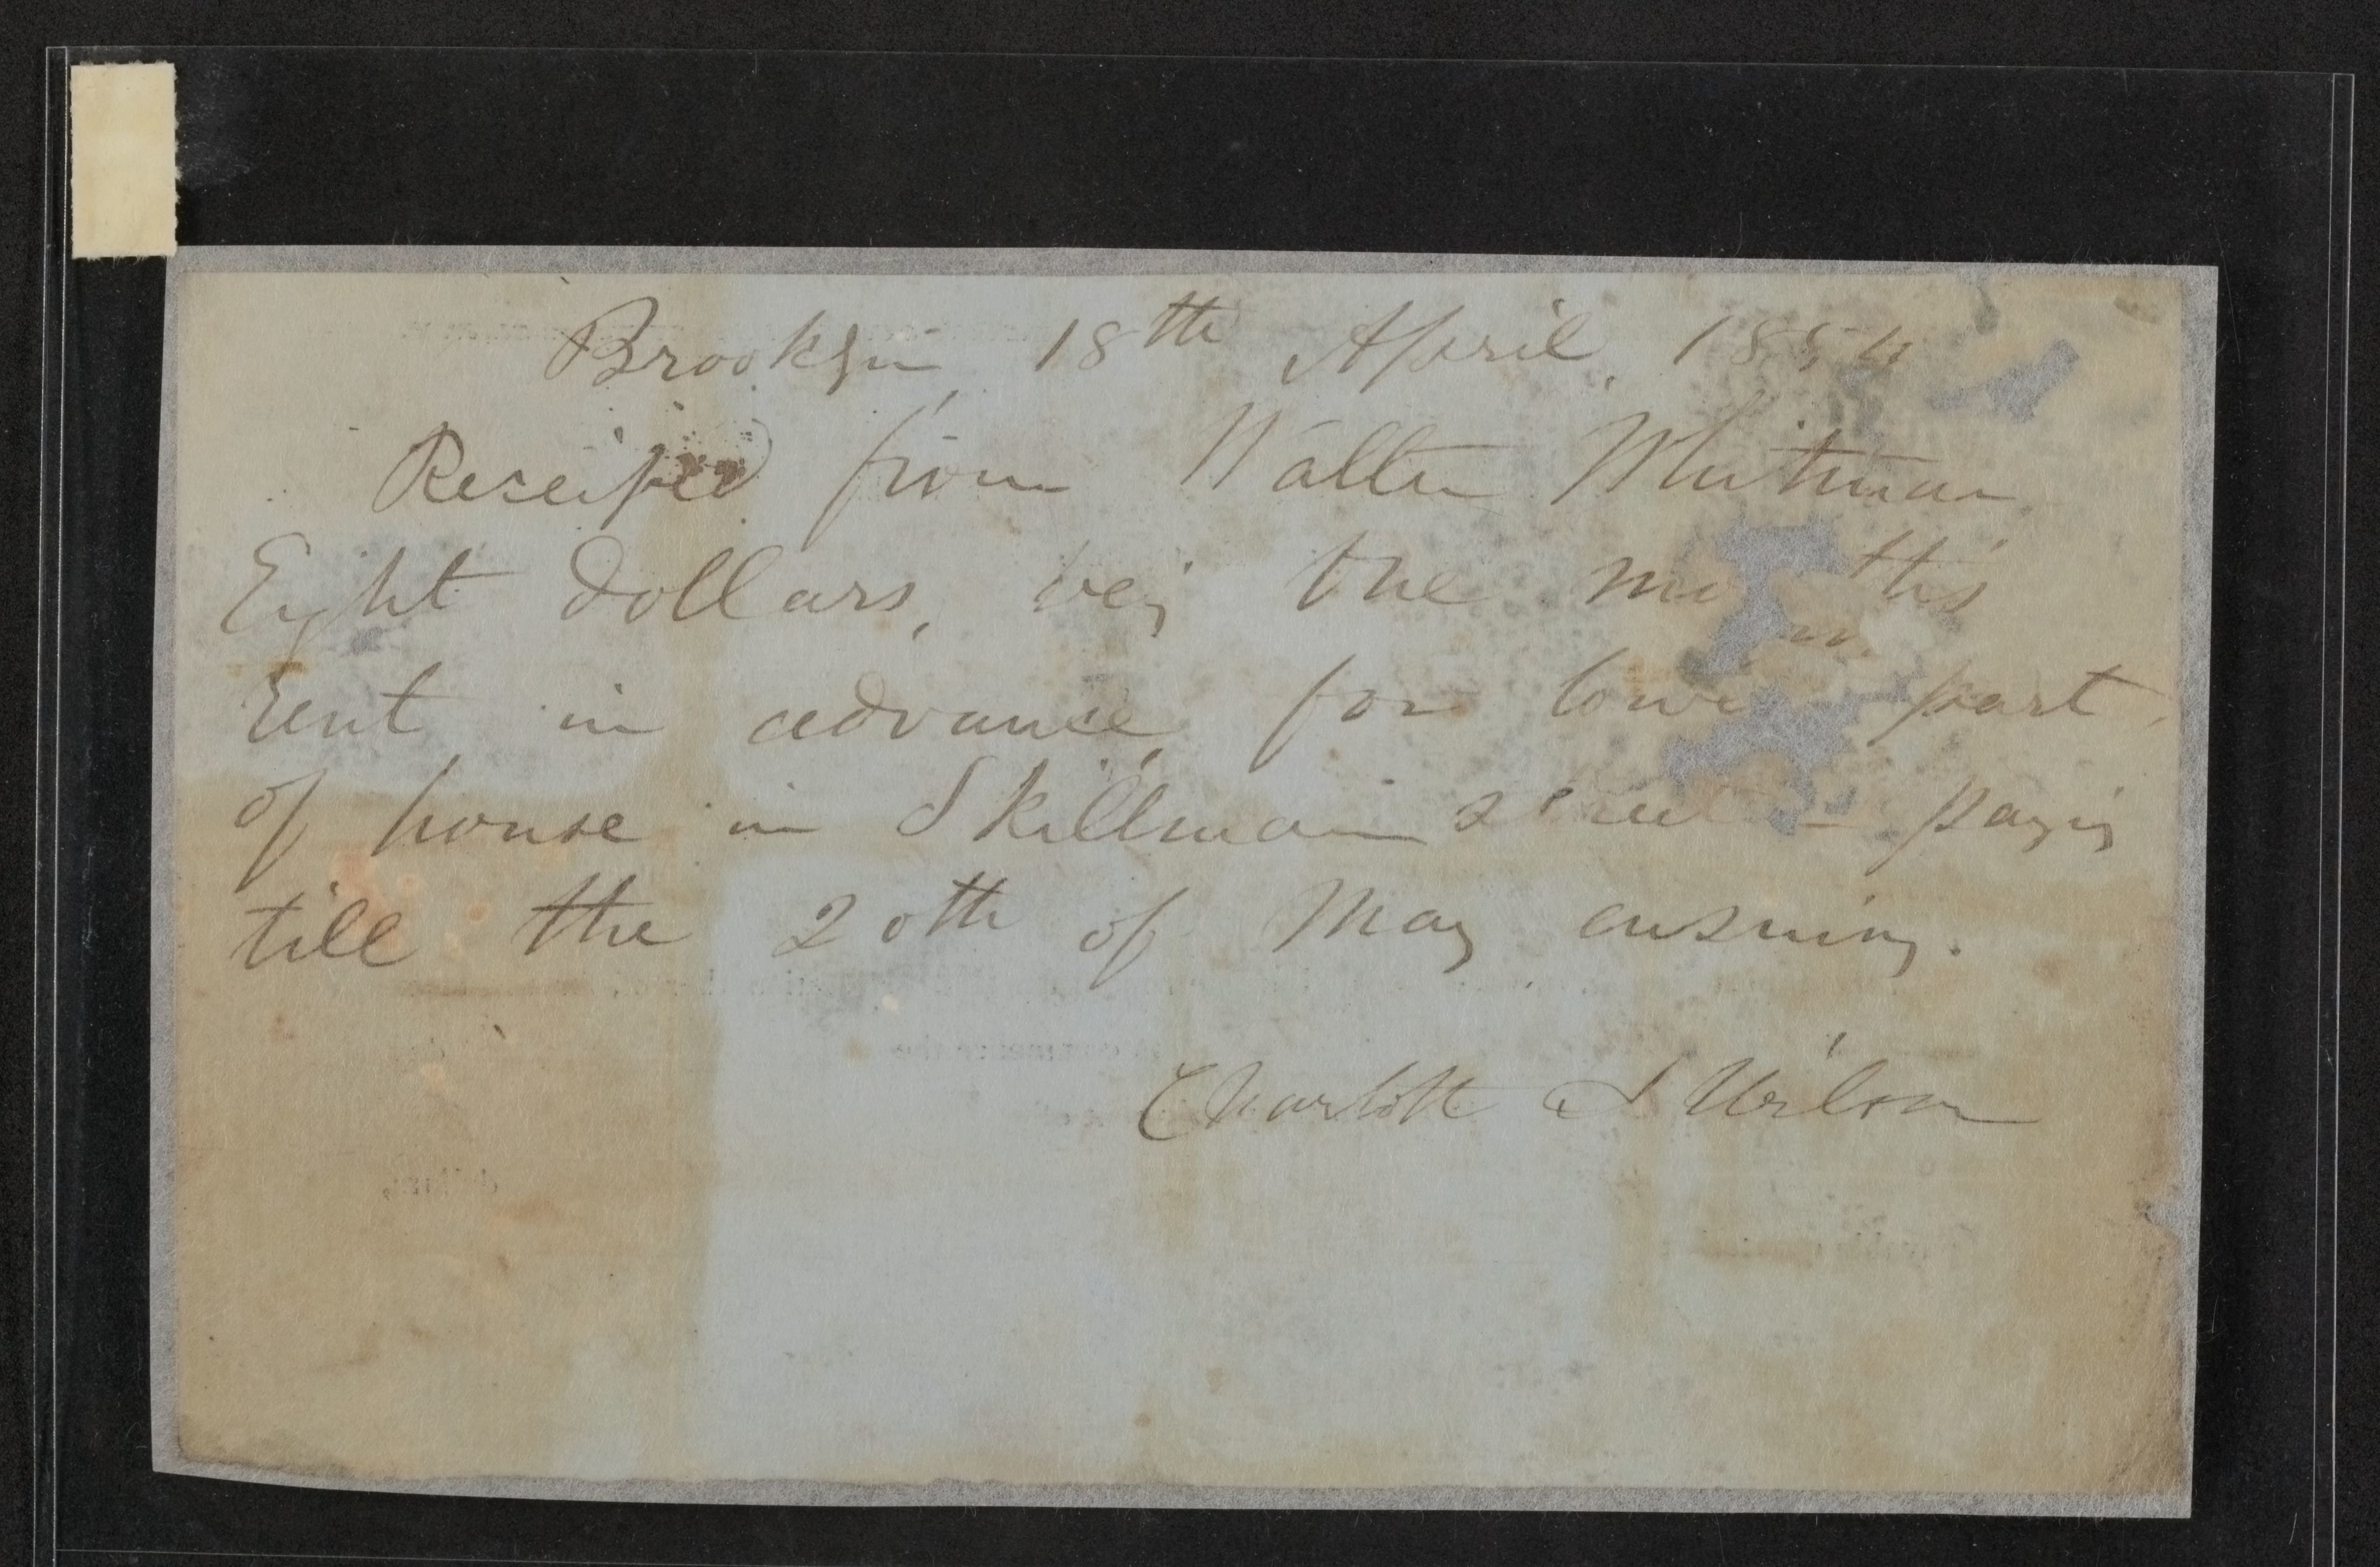 Brooklyn, 18th April, 1854
Receipted from Walter Whitman
Eight dollars, being the month's
rent in advance, for lower part
of house in Skillman street – paying
till the 20th of May ensuing.
Charlotte S Wilson